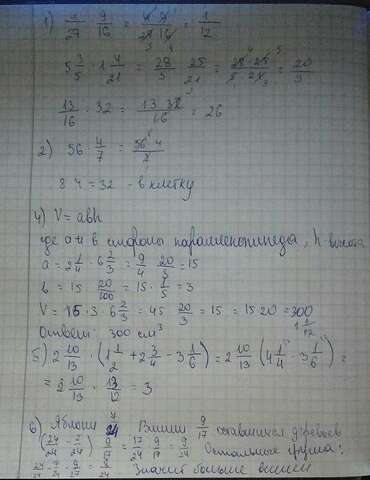 1) 4/27 · 9/16 = 4 · 9/27 · 16 = 1/12
5 3/5 · 1 4/21 = 28/5 · 25/21 = 28 · 25/5 · 21 = 20/3
13/16 · 32 = 13 · 32/16 = 26
2) 56 · 4/7 = 56 · 4/7
8 · 4 = 32 - в клетку
4) V = abh
где а и в стороны параллелепипеда, h - высота
a = 2 1/4 · 6 2/3 = 9/4 · 20/3 = 15
b = 15 · 20/100 = 15 · 1/5 = 3
V = 15 · 3 · 6 2/3 = 45 · 20/3 = 15 = 15 20 = 300
Ответ: 300 см³
1 1/12
5) 2 10/13 · (1 1/2 + 2 3/4 - 3 1/6) = 2 10/13 (4 1/4 - 3 1/6) =
= 2 10/13 · 13/12 = 3
6) Яблони 7/24 Вишни 9/17 оставшихся деревьев
(24/24 - 7/24) · 9/17 = 17/24 · 9/17 = 9/24
24/24 - 7/24 - 9/24 = 8/24 Значит больше вишни